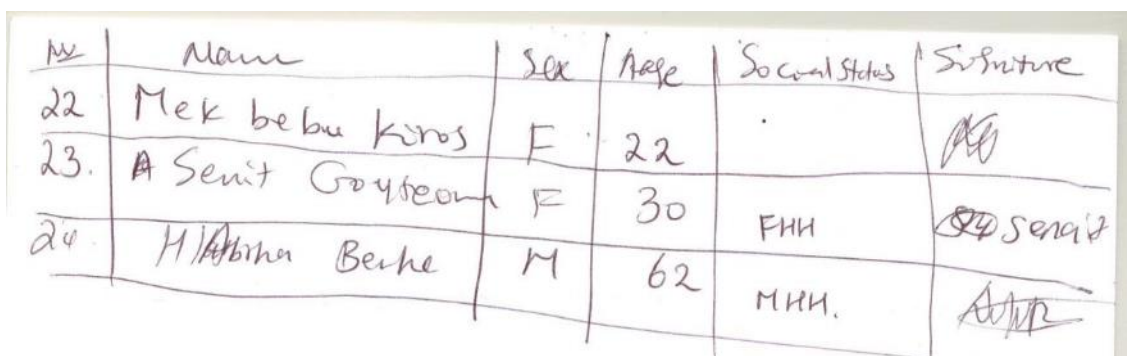 No Name Sex Aage Social Status
22 Mek bebu Kiros F 22
23. A Senit Goyteom F 30 FHH senait
24. Berhe M 62 MHH.